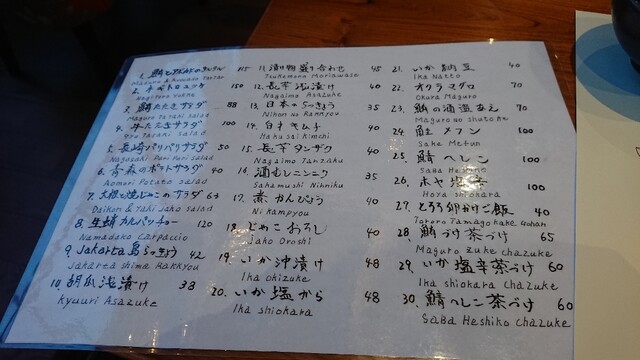 1. 鮪とアボカドのタルタル 115
Maguro & Avocado Tartar
2. ネギトロユッケ 150
Negitoro Yukke
3. 鮪たたきサラダ 88
Maguro Tataki Salad
4. 牛たたきサラダ 100
Tataki Salad
5. 長崎パリパリサラダ 50
Nagasaki Pari Pari Salad
6. 青森のポテトサラダ 40
Aomori Potato Salad
7. 大根と焼じゃこのサラダ 63
Daikon & Yaki Jako salad
8. 生蛸カルパッチョー 120
Namadako Carpaccio
9. Jakarta島らっきょう 42
Jakarta shima Rakkyou
10. 胡瓜浅漬け 38
kyuuri Asazuke
11. 漬け物盛り合わせ 45
Tsukemono Moriawase
12. 長芋浅漬け 40
Nagaimo Asazuke
13. 日本のらっきょう 35
Nihon no Rakkyou
14. 白才キムチ 40
Hakusai Kimchi
15. 長芋タンザク 40
Nagaimo Tanzaku
16. 酒むしニンニク 35
Sakamushi Ninniku
17. 煮かんぴょう 40
Ni Kampyou
18. じゃこおろし 40
Jako Oroshi
19. いか沖漬け 48
Ika okizuke
20. いか塩から 48
Ika shiokara
21. いか納豆 40
Ika Natto
22. オクラマグロ 70
Okura Maguro
23. 鮪の酒盗あえ 70
Maguro no shutoke
24. 鮭メフン 100
Sake Mefun
25. 鯖へしこ 100
Saba Heshiko
26. ホヤ塩辛 100
Hoya shiokara
27. とろろ卵かけご飯 40
Tororo Tamagokake Gohan
28. 鮪づけ茶づけ 65
Maguro zuke chazuke
29. いか塩辛茶づけ 60
Ika shiokara Chazuke
30. 鯖へしこ茶づけ 60
Saba Heshiko Chazuke